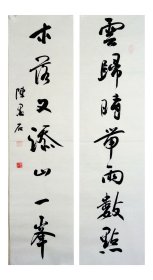 雲歸時帶雨數點
木落又添山一峯
陸晶石